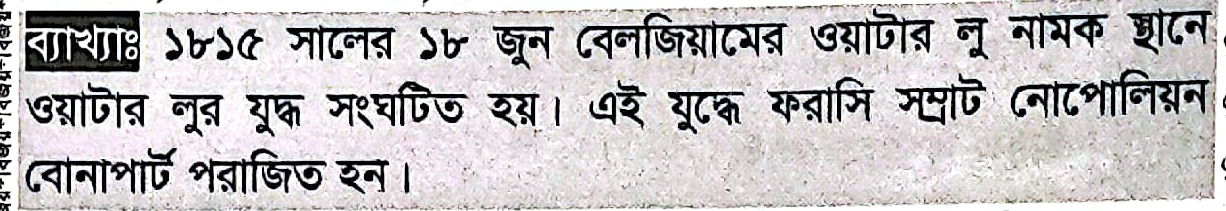 ব্যাখ্যাঃ ১৮১৫ সালের ১৮ জুন বেলজিয়ামের ওয়াটার লু নামক স্থানে
ওয়াটার লুর যুদ্ধ সংঘটিত হয়। এই যুদ্ধে ফরাসি সম্রাট নোপোলিয়ন
বোনাপার্ট পরাজিত হন।